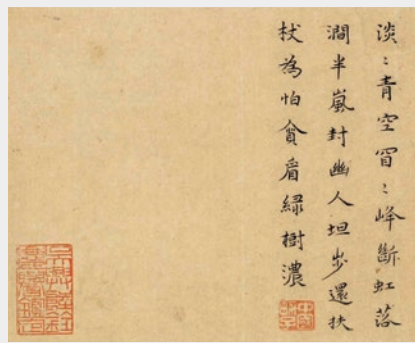 淡〻青空窅〻峰斷虹落
澗半嵐封幽人坦步還扶
杖為怕貪看綠樹濃